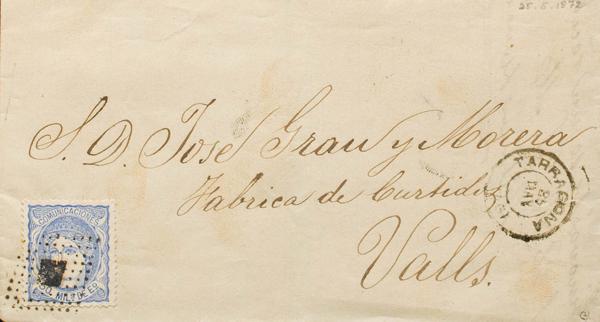 25.5.1872
S. D. Jose Grau y Morera
Fabrica de Curtidos
Valls.
TARRAGONA
25
MAY
COMUNICACIONES
50 MILS DE E.